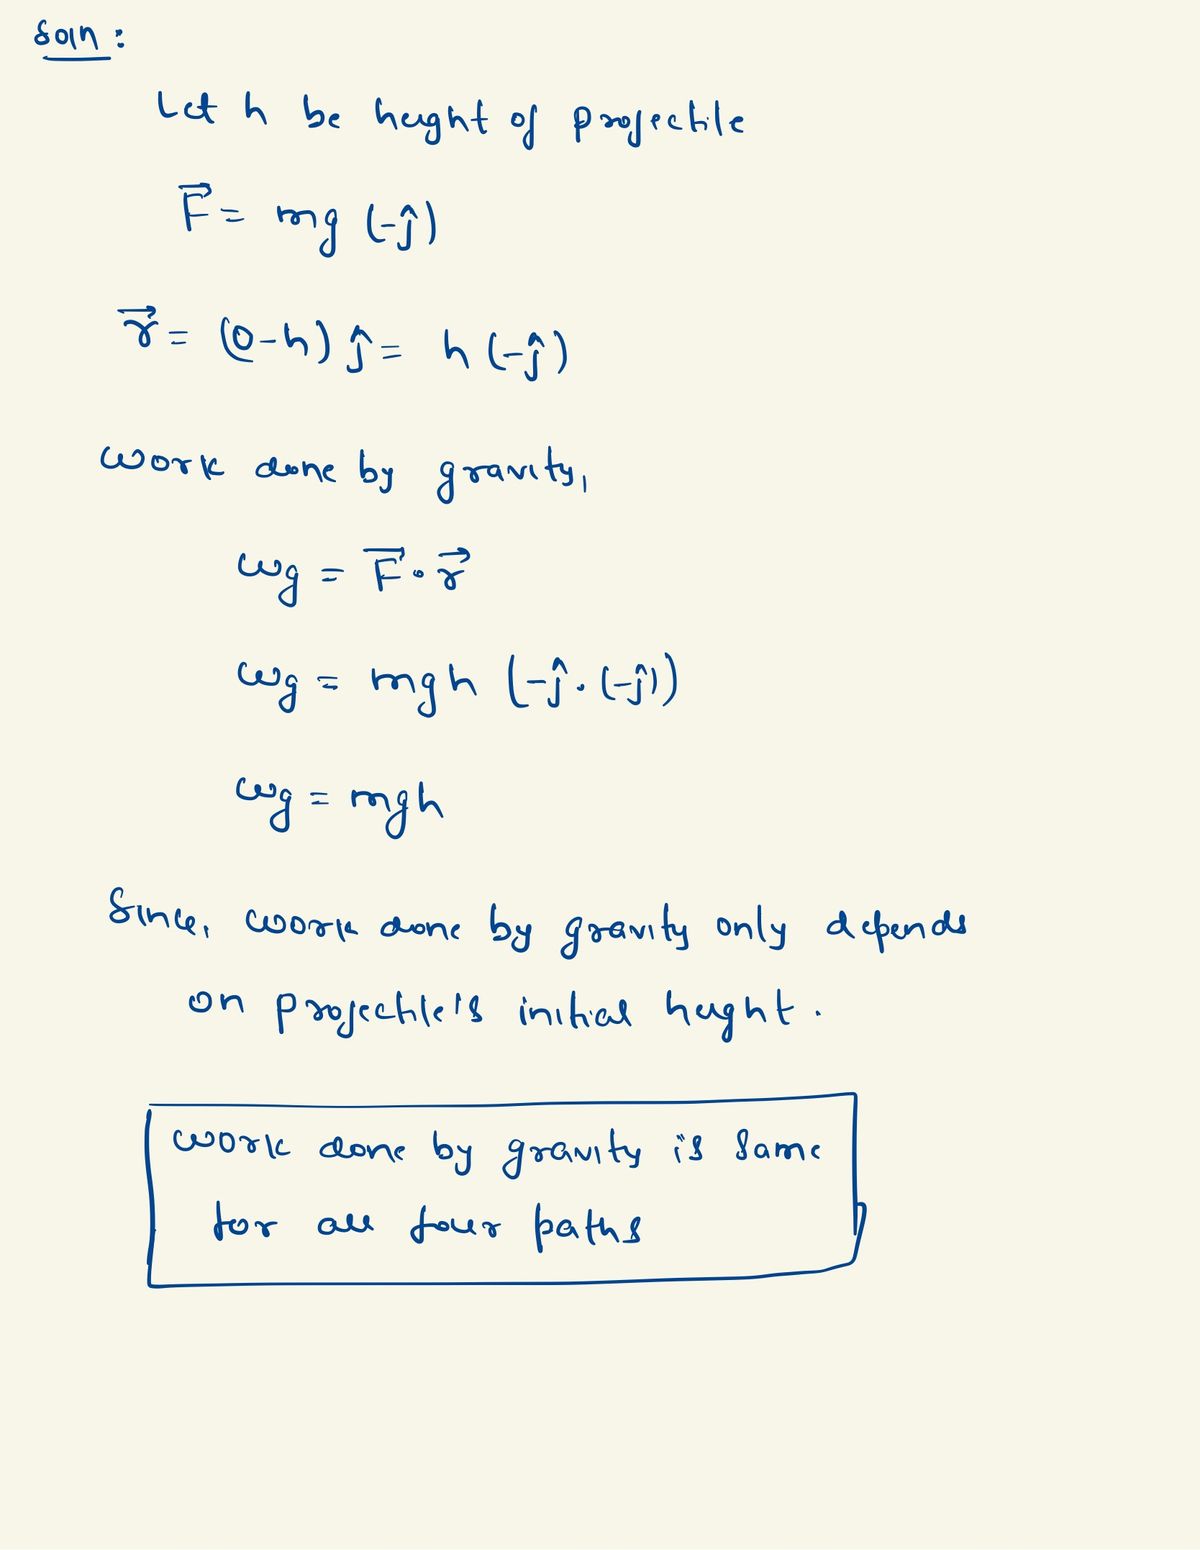 Soln :
Let h be height of projectile
F⃗ = mg (-ĵ)
r⃗ = (0-h) ĵ = h (-ĵ)
work done by gravity,
wg = F⃗ . r⃗
wg = mgh (-ĵ . (-ĵ))
wg = mgh
Since, work done by gravity only depends
on projectile's initial height .
work done by gravity is same
for all four paths